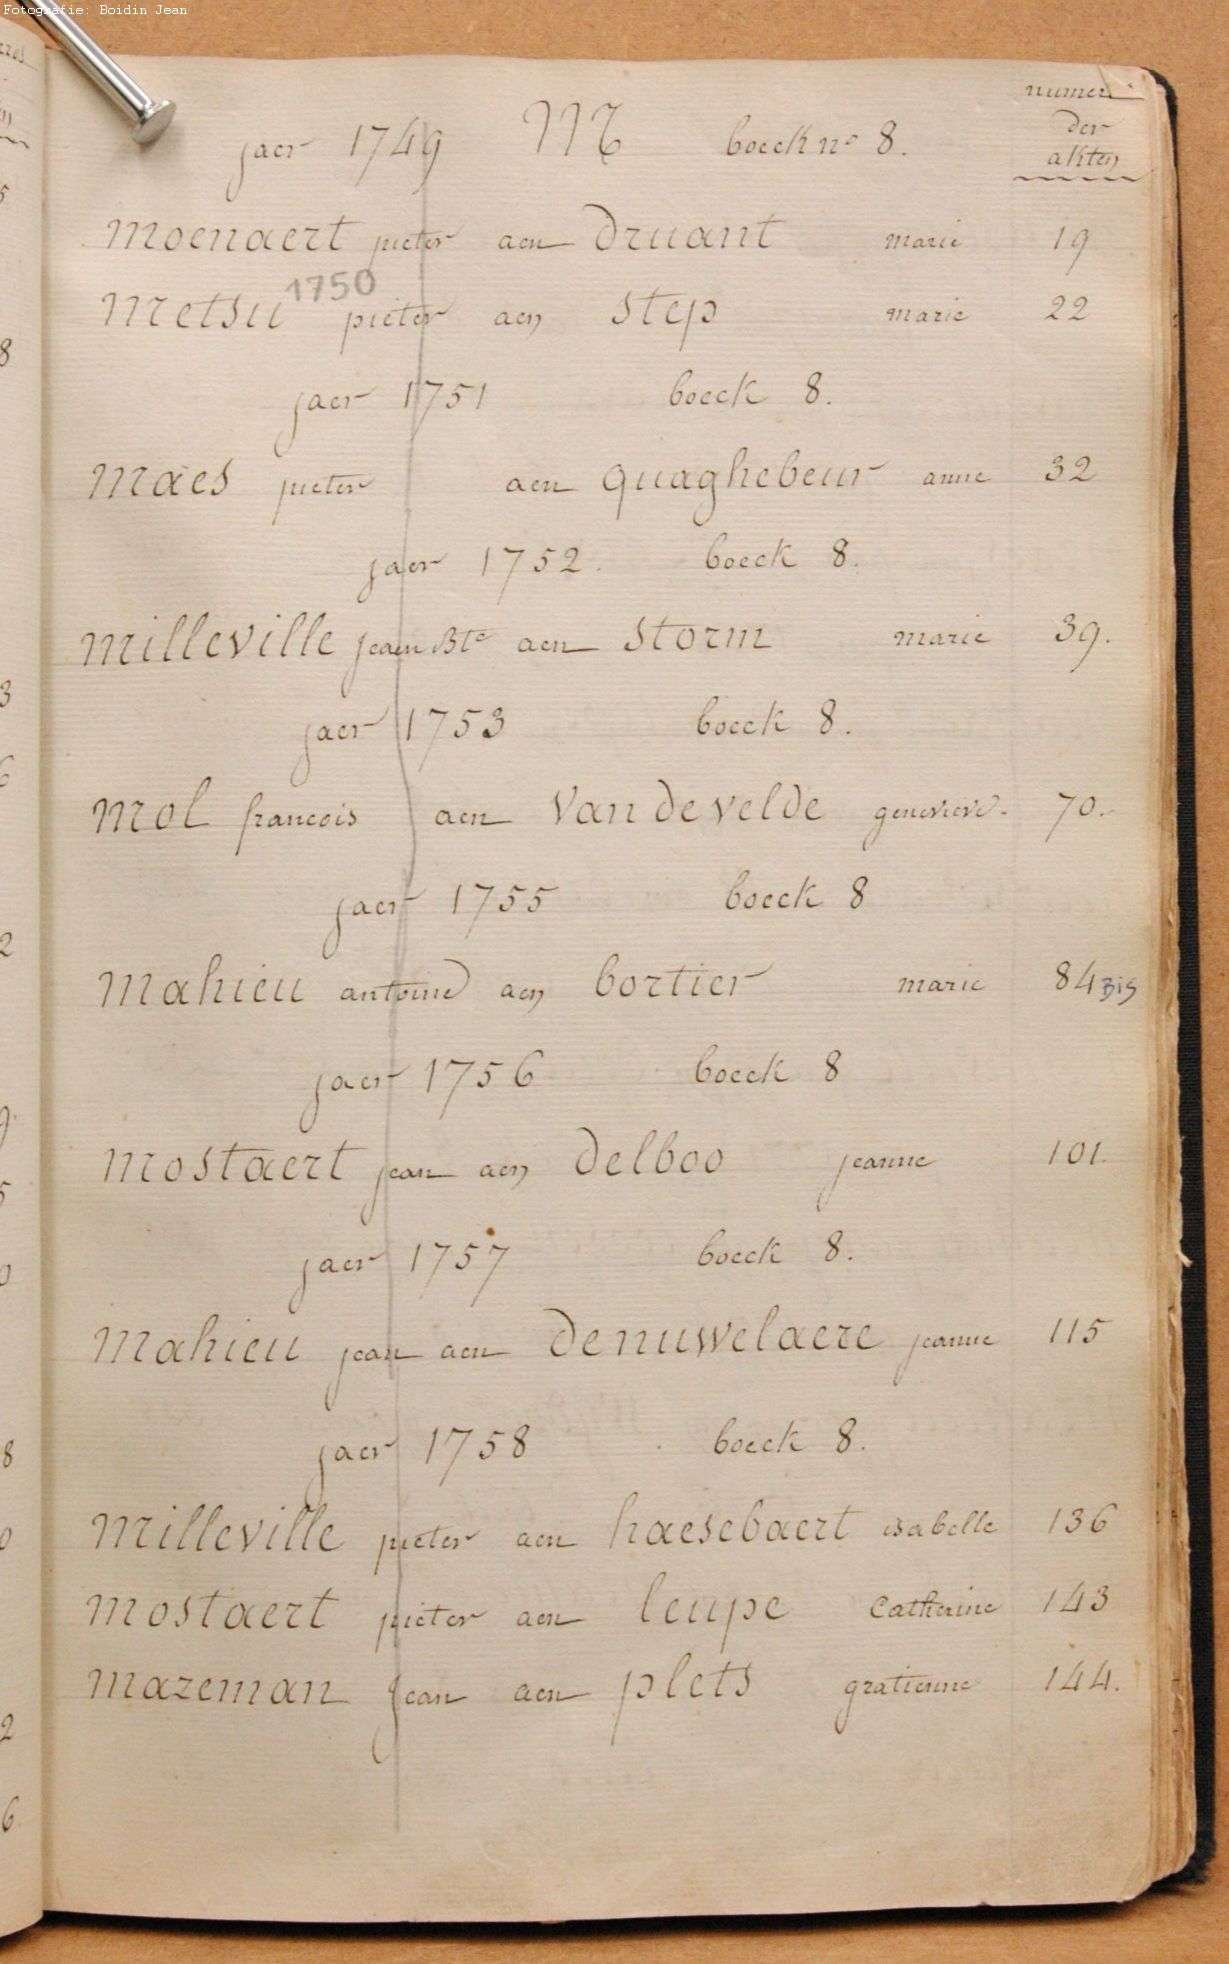 Fotografie: Boidin Jean
numer
der
akten
jaer 1749 M boeck no 8.
moenaert pieter aen druant marie 19
1750
metsu pieter aen step marie 22
jaer 1751 boeck 8.
maes pieter aen quaghebeur anne 32
jaer 1752. boeck 8.
milleville jean Bte aen storm marie 39.
jaer 1753 boeck 8.
mol francois aen vandevelde genevieve. 70.
jaer 1755 boeck 8
mahieu antoine aen bortier marie 84 bis
jaer 1756 boeck 8
mostaert jean aen delboo jeanne 101.
jaer 1757 boeck 8.
mahieu jean aen denuwelaere jeanne 115
jaer 1758 boeck 8.
milleville pieter aen haesebaert isabelle 136
mostaert pieter aen leupe Catherine 143
mazeman jean aen plets gratienne 144.